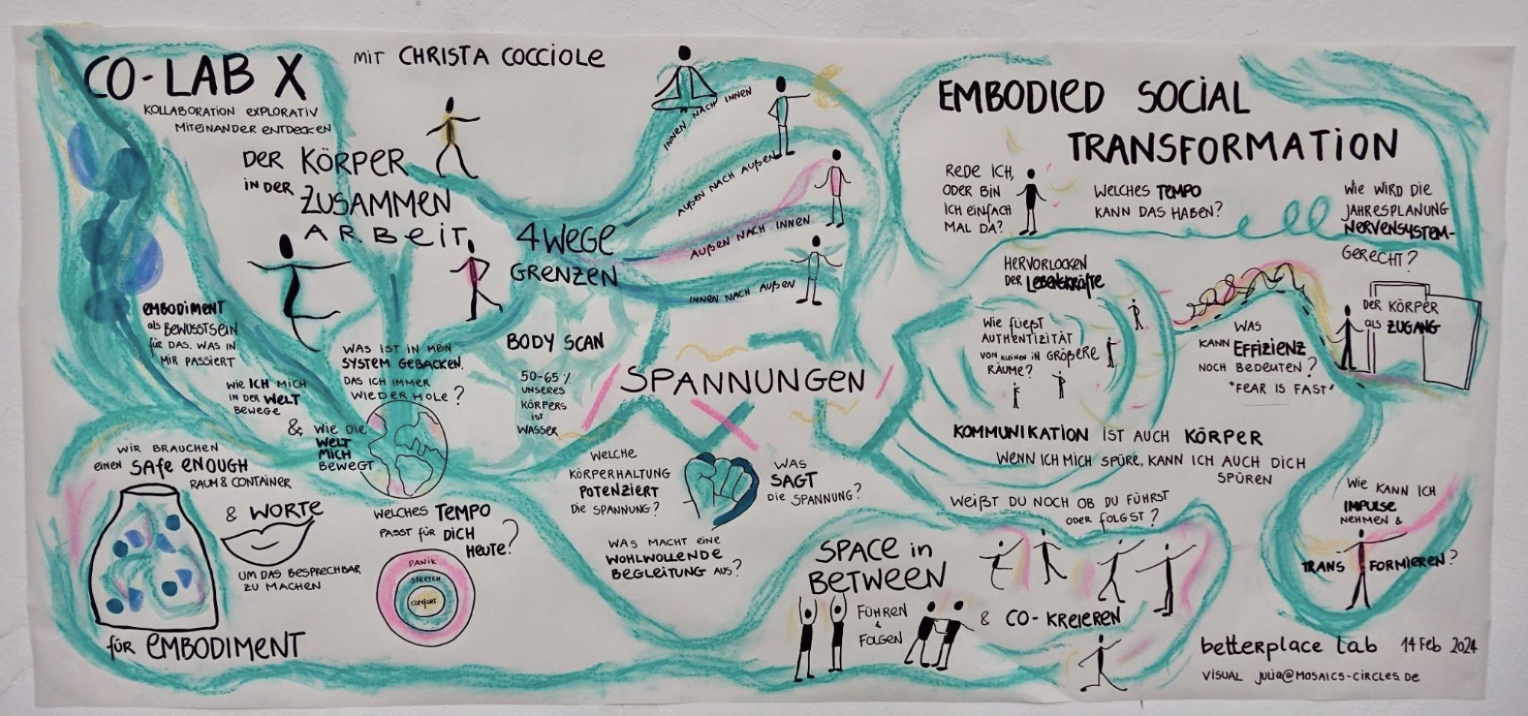 CO-LAB X
MIT CHRISTA COCCIOLE
KOLLABORATION EXPLORATIV
MITEINANDER ENTDECKEN
DER KÖRPER
IN DER
ZUSAMMEN
ARBEIT
EMBODIMENT
als BEWUSSTSEIN
für DAS, WAS IN
MIR PASSIERT
WIE ICH MICH
IN DER WELT
BEWEGE
& WIE DIE
WELT
MICH
BEWEGT
WAS IST IN MEIN
SYSTEM GEBACKEN,
DAS ICH IMMER
WIEDERHOLE?
WIR BRAUCHEN
EINEN SAFE ENOUGH
RAUM & CONTAINER
& WORTE
UM DAS BESPRECHBAR
ZU MACHEN
für EMBODIMENT
WELCHES TEMPO
PASST für DICH
HEUTE?
PANIK
STRETCH
COMFORT
4 WEGE
GRENZEN
INNEN NACH INNEN
AUßEN NACH AUßEN
AUßEN NACH INNEN
INNEN NACH AUßEN
BODY SCAN
50-65%
UNSERES
KÖRPERS
IST
WASSER
SPANNUNGEN
WELCHE
KÖRPERHALTUNG
POTENZIERT
DIE SPANNUNG?
WAS
SAGT
DIE SPANNUNG?
WAS MACHT EINE
WOHLWOLLENDE
BEGLEITUNG AUS?
EMBODIED SOCIAL
TRANSFORMATION
REDE ICH,
ODER BIN
ICH EINFACH
MAL DA?
WELCHES TEMPO
KANN DAS HABEN?
WIE WIRD DIE
JAHRESPLANUNG
NERVENSYSTEM-
GERECHT?
HERVORLOCKEN
DER LEBENSKRÄFTE
WIE FLIEßT
AUTHENTIZITÄT
VON KLEINEN IN GRÖßERE
RÄUME?
WAS
KANN EFFIZIENZ
NOCH BEDEUTEN?
"FEAR IS FAST"
DER KÖRPER
als ZUGANG
KOMMUNIKATION IST AUCH KÖRPER
WENN ICH MICH SPÜRE, KANN ICH AUCH DICH
SPÜREN
WEIßT DU NOCH OB DU FÜHRST
ODER FOLGST?
SPACE in
BETWEEN
FÜHREN
&
FOLGEN
& CO-KREIEREN
WIE KANN ICH
IMPULSE
NEHMEN &
TRANSFORMIEREN?
betterplace lab 14 Feb 2024
VISUAL JULIA@MOSAICS-CIRCLES.DE